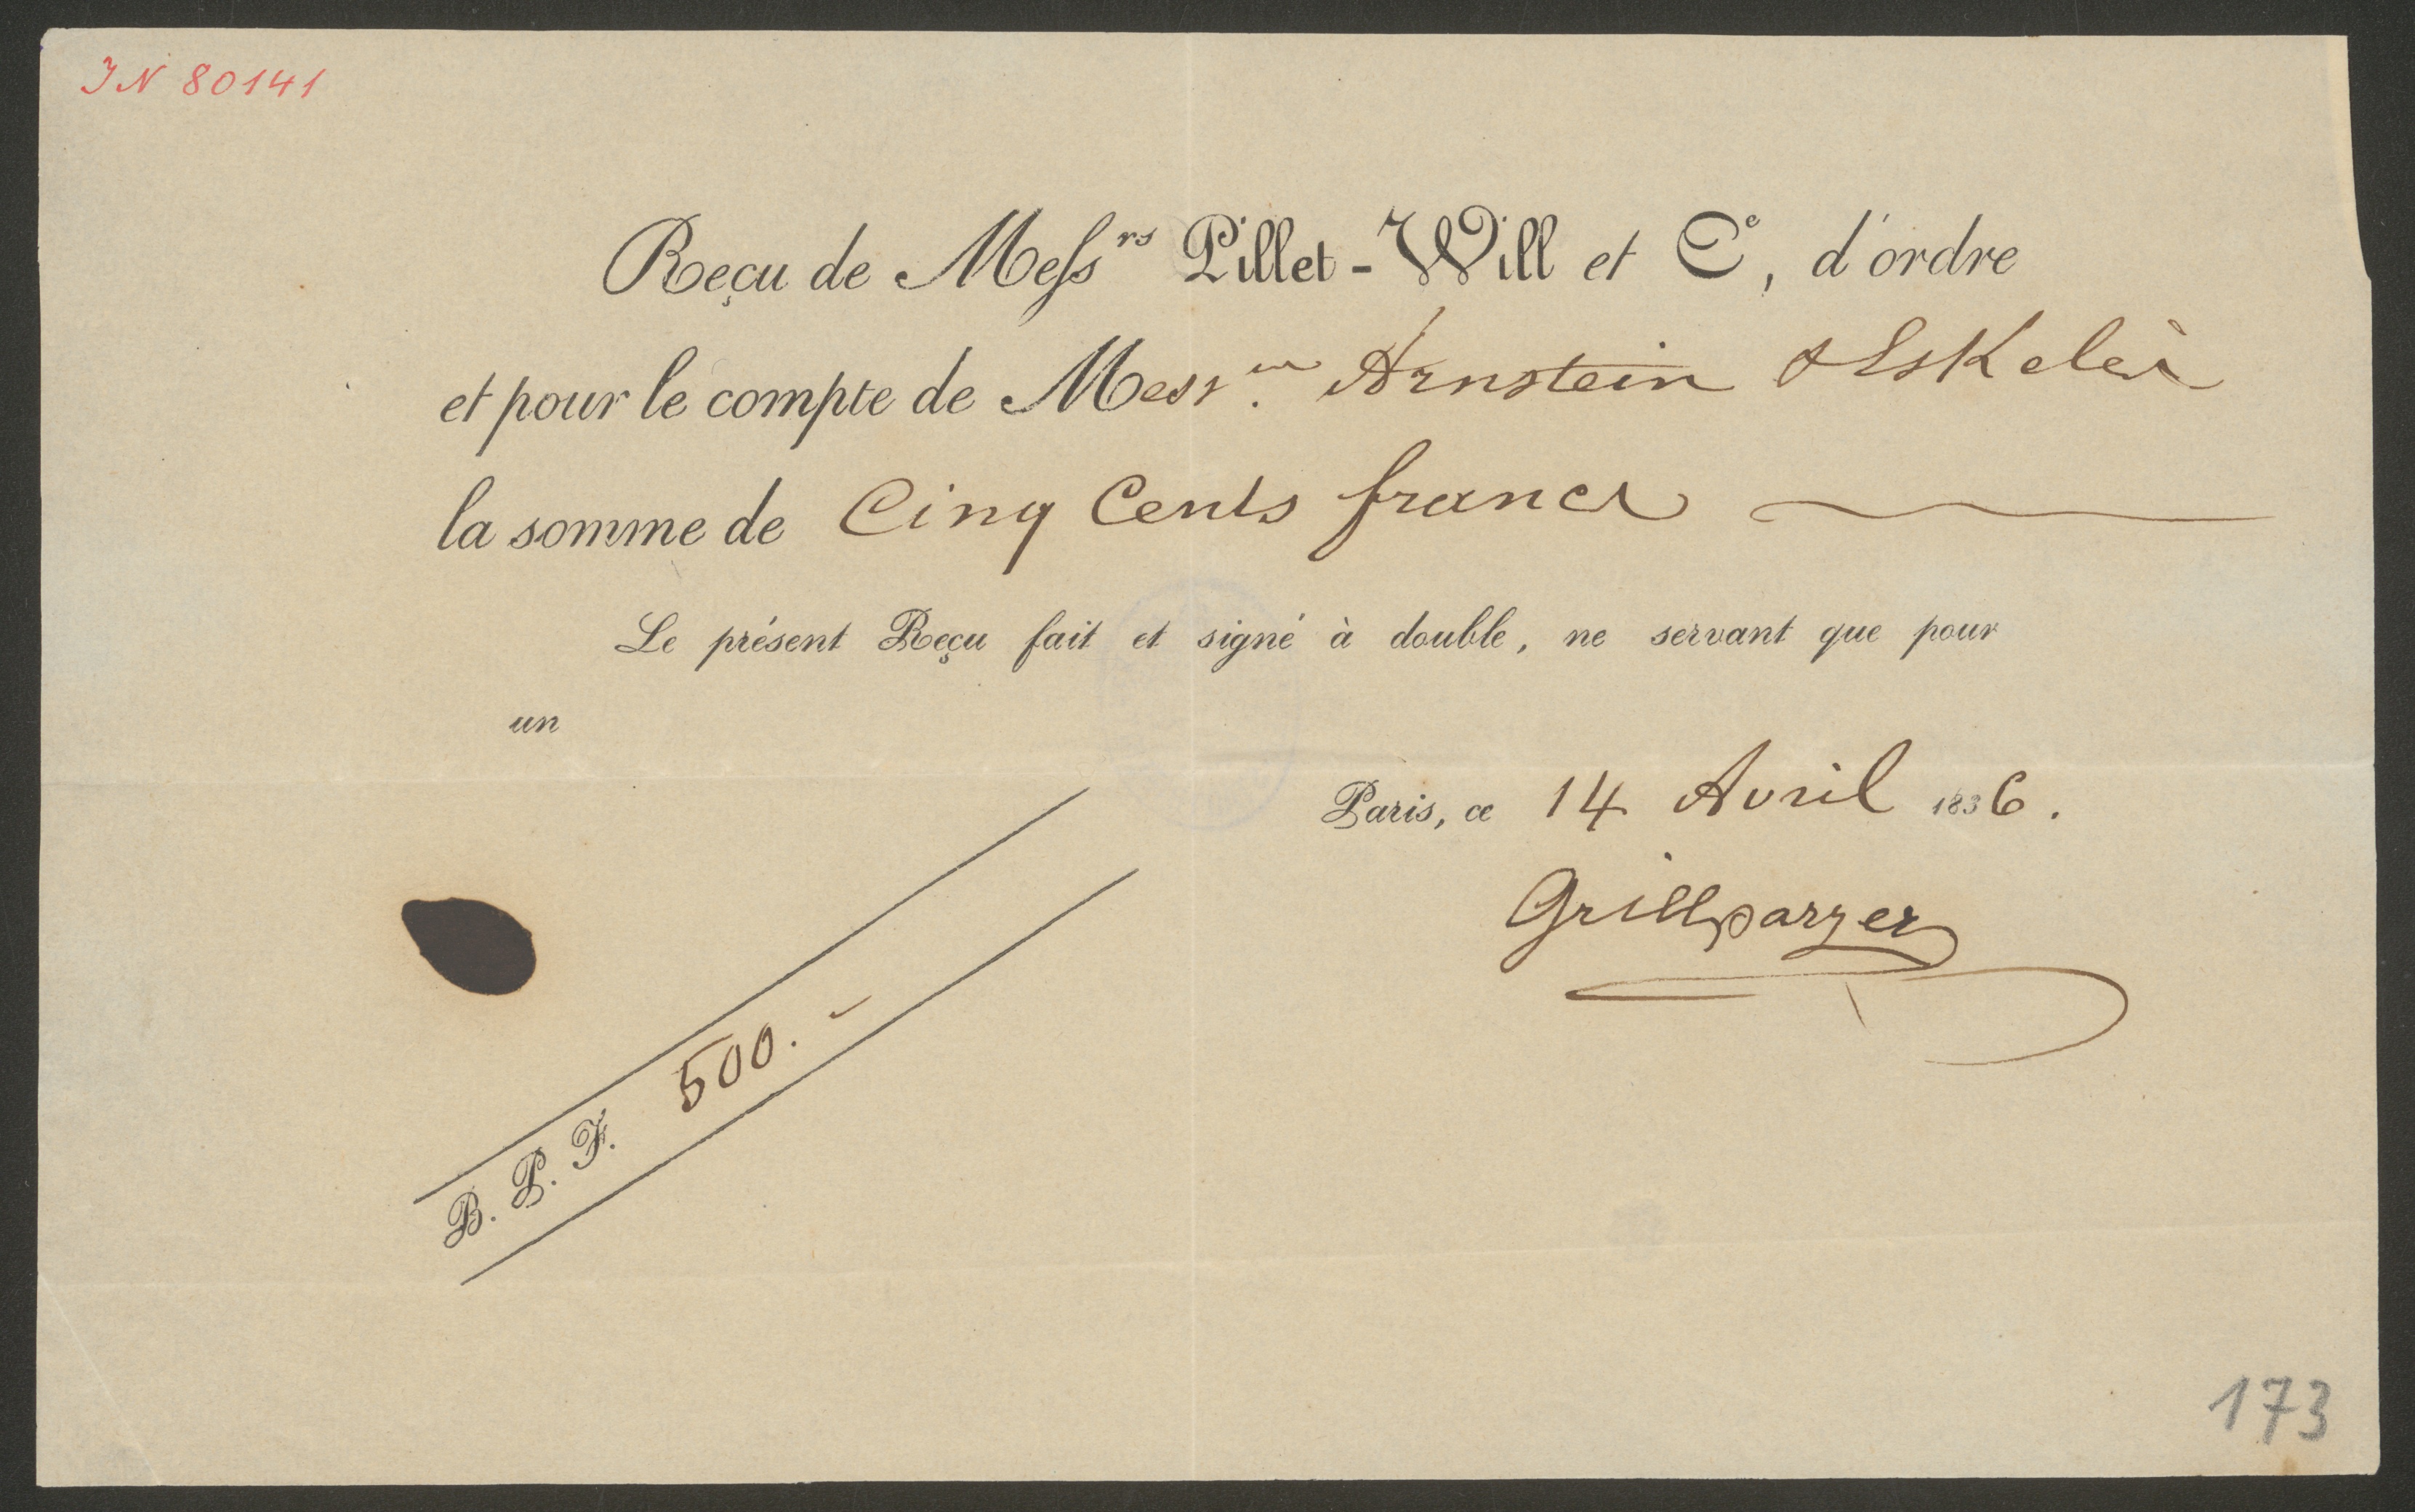 JN 80141
Reçu de Messrs Pillet-Will et Ce, d'ordre
et pour le compte de Messrs Arnstein & Eskeles
la somme de Cinq Cents francs
Le présent Reçu fait et signé à double, ne servant que pour
un
Paris, ce 14 Avril 1836.
Grillparzer
B. P. F. 500.-
173